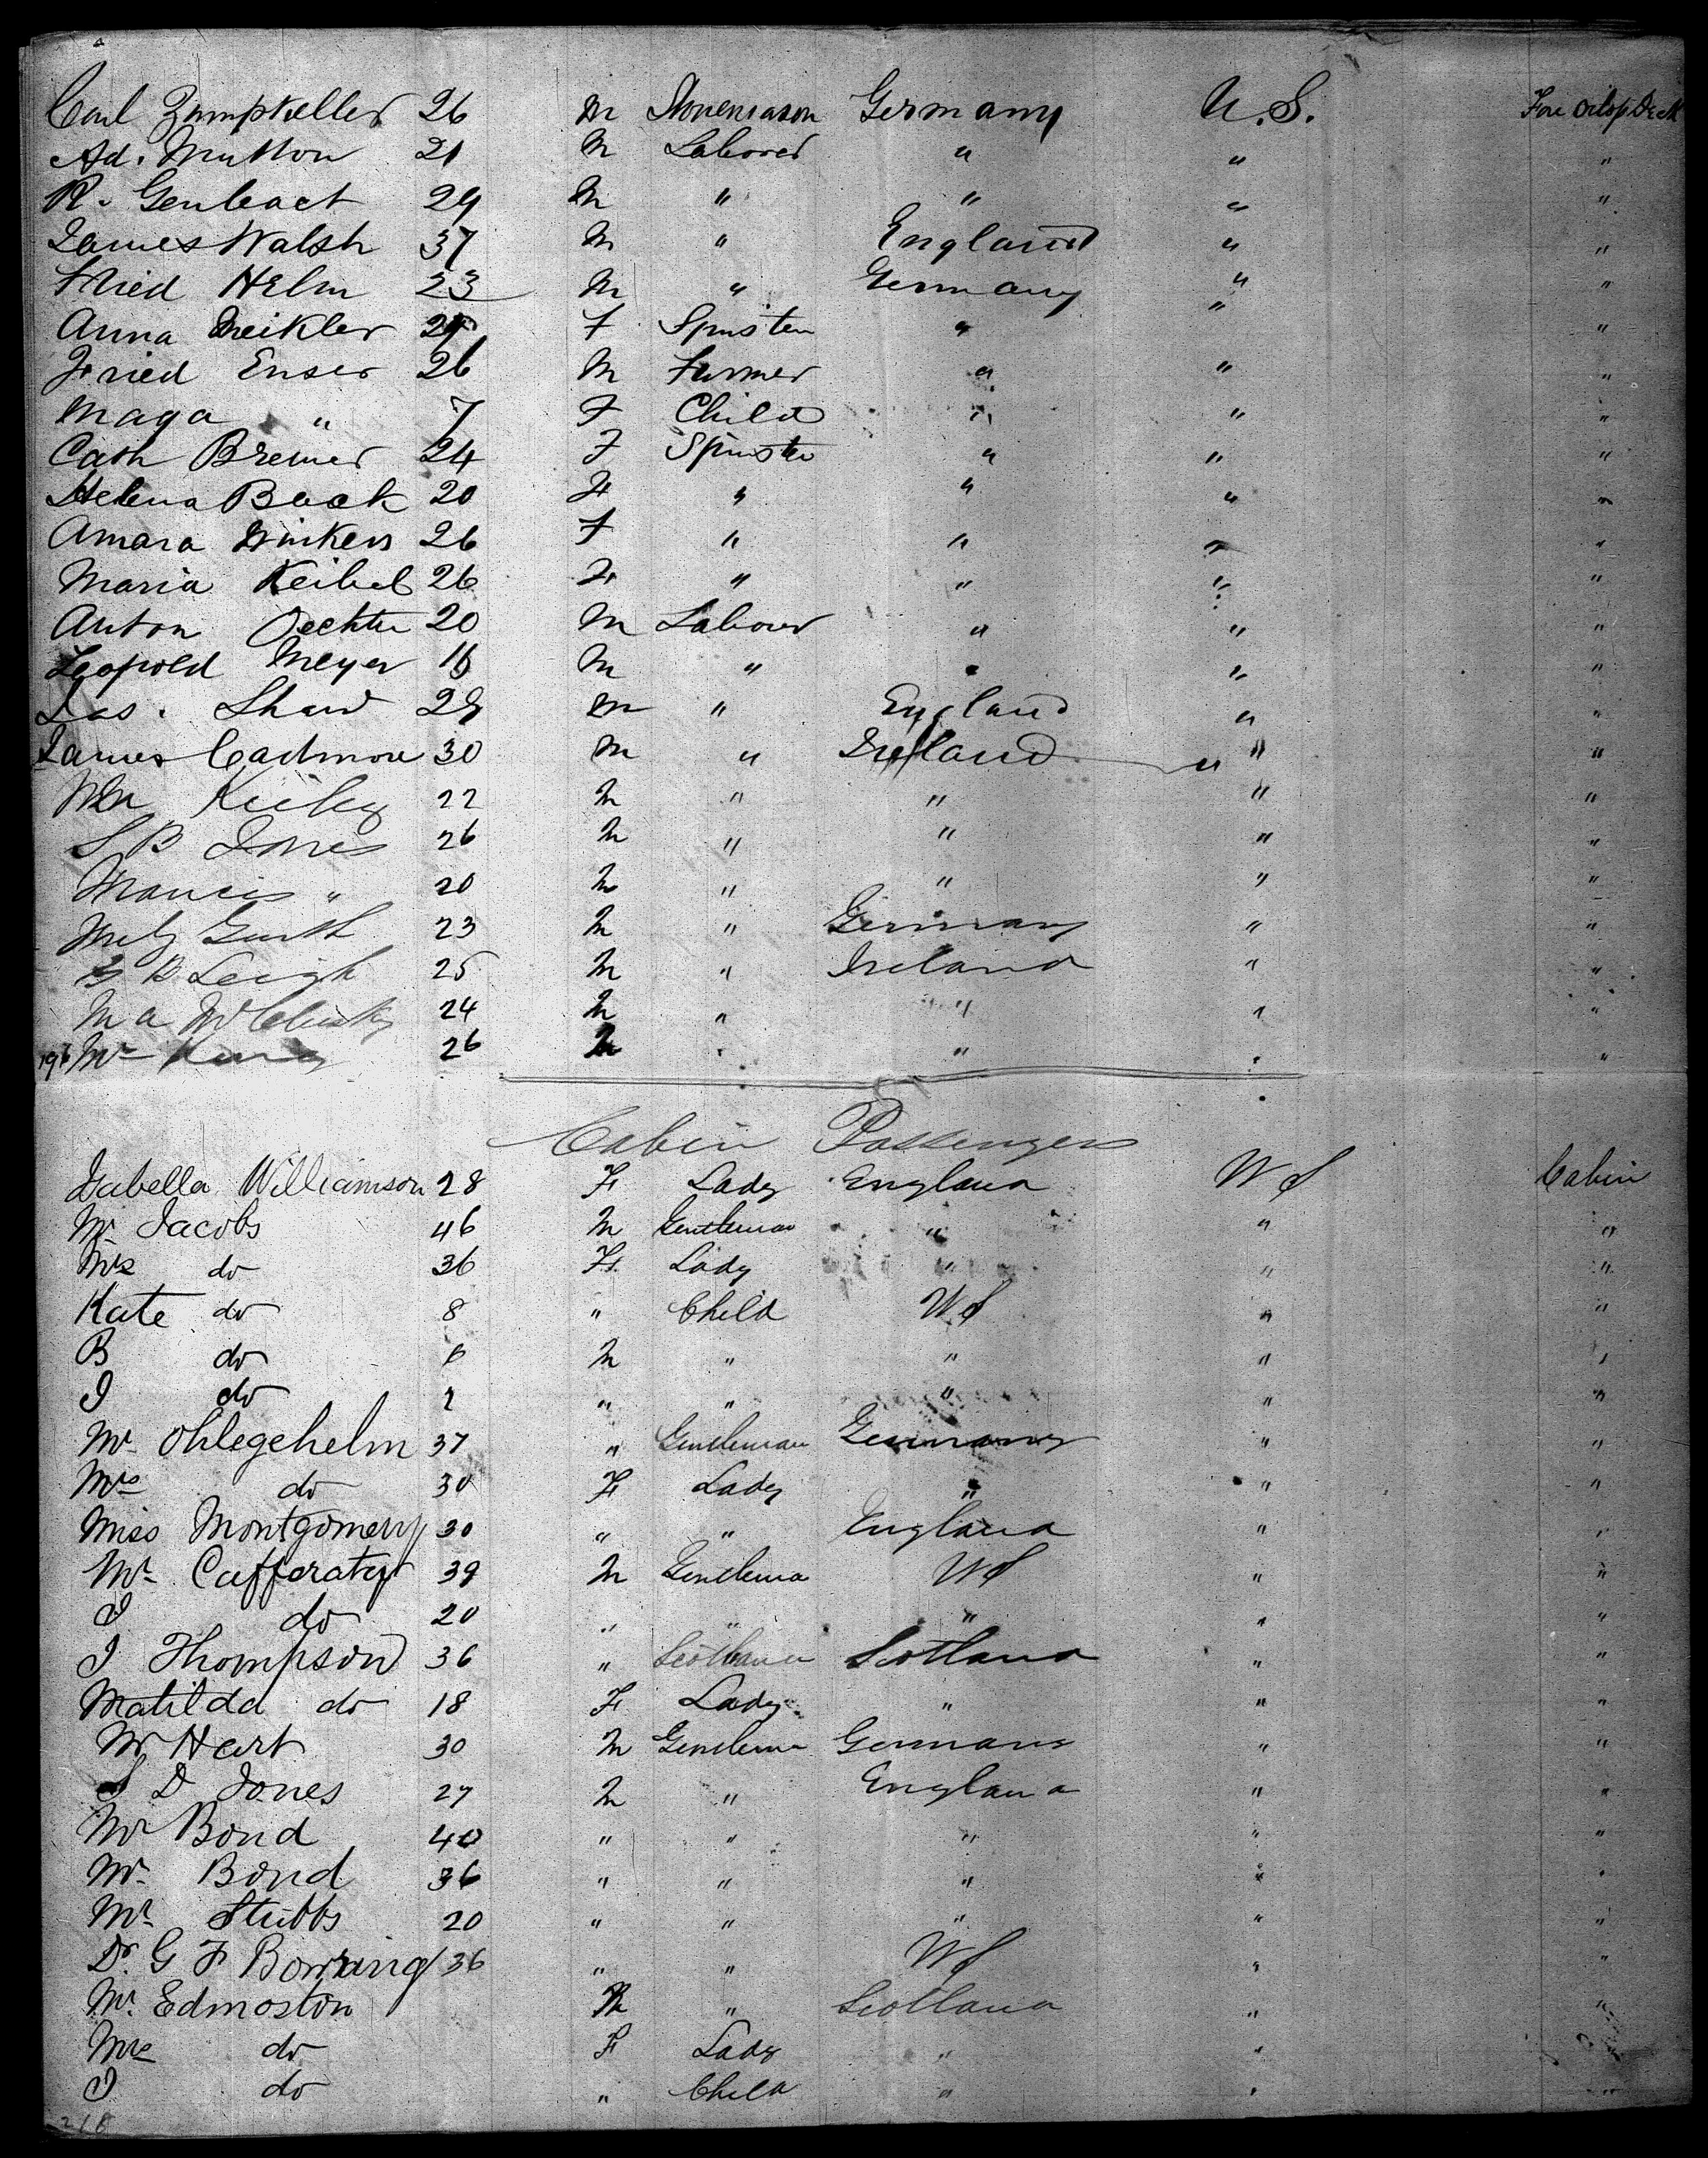 Carl Zumpkeller 26 m Stonemason Germany U.S. Fore orlop Deck
Ad. Mutton 21 m Laborer " " "
R. Genbact 29 m " " " "
James Walsh 37 m " England " "
Fried Helm 23 m " Germany " "
Anna Meikler F Spinster " " "
Fried Enser 26 m Farmer " " "
Maga " 7 F Child " " "
Cath Bremer 24 F Spinster " " "
Helena Back 20 F " " " "
Amara Winkers 26 F " " " "
Maria Keibel 26 F " " " "
Anton Oechter 20 m Laborer " " "
Leopold Meyer m " " " "
Jas. Shaw 29 m " England " "
James Cadmore 30 m " Ireland " "
Wm Keiley 22 m " " " "
S B Jones 26 m " " " "
Francis " 20 m " " " "
Gurth 23 m " Germany " "
B Leigh 25 m " Ireland " "
M a McClusky 24 m " " " "
196 Mr King 26 m " " " "
Cabin Passengers
Isabella Williamson 28 F Lady England US Cabin
Mr Jacobs 46 m Gentleman " " "
Mrs do 36 F Lady " " "
Kate do 8 " Child US " "
B do 6 m " " " "
I do 2 " " " " "
Mr Ohlegehelm 37 " Gentleman Germany " "
Mrs do 30 F Lady " " "
Miss Montgomery 30 " " England " "
Mr Cafferatey 39 m Gentleman US " "
I do 20 " " " " "
I Thompson 36 " Scotland " "
Matilda do 18 F Lady " " "
Mr Hart 30 m Gentleman Germany " "
S D Jones 27 m " England " "
Mr Bond 40 " " " " "
Mr. Bond 36 " " " " "
Mr. Stubbs 20 " " " " "
Dr. G F Bowring 36 " " US " "
Mr. Edmoston m " Scotland " "
Mrs do F Lady " " "
I do " Child " " "
218